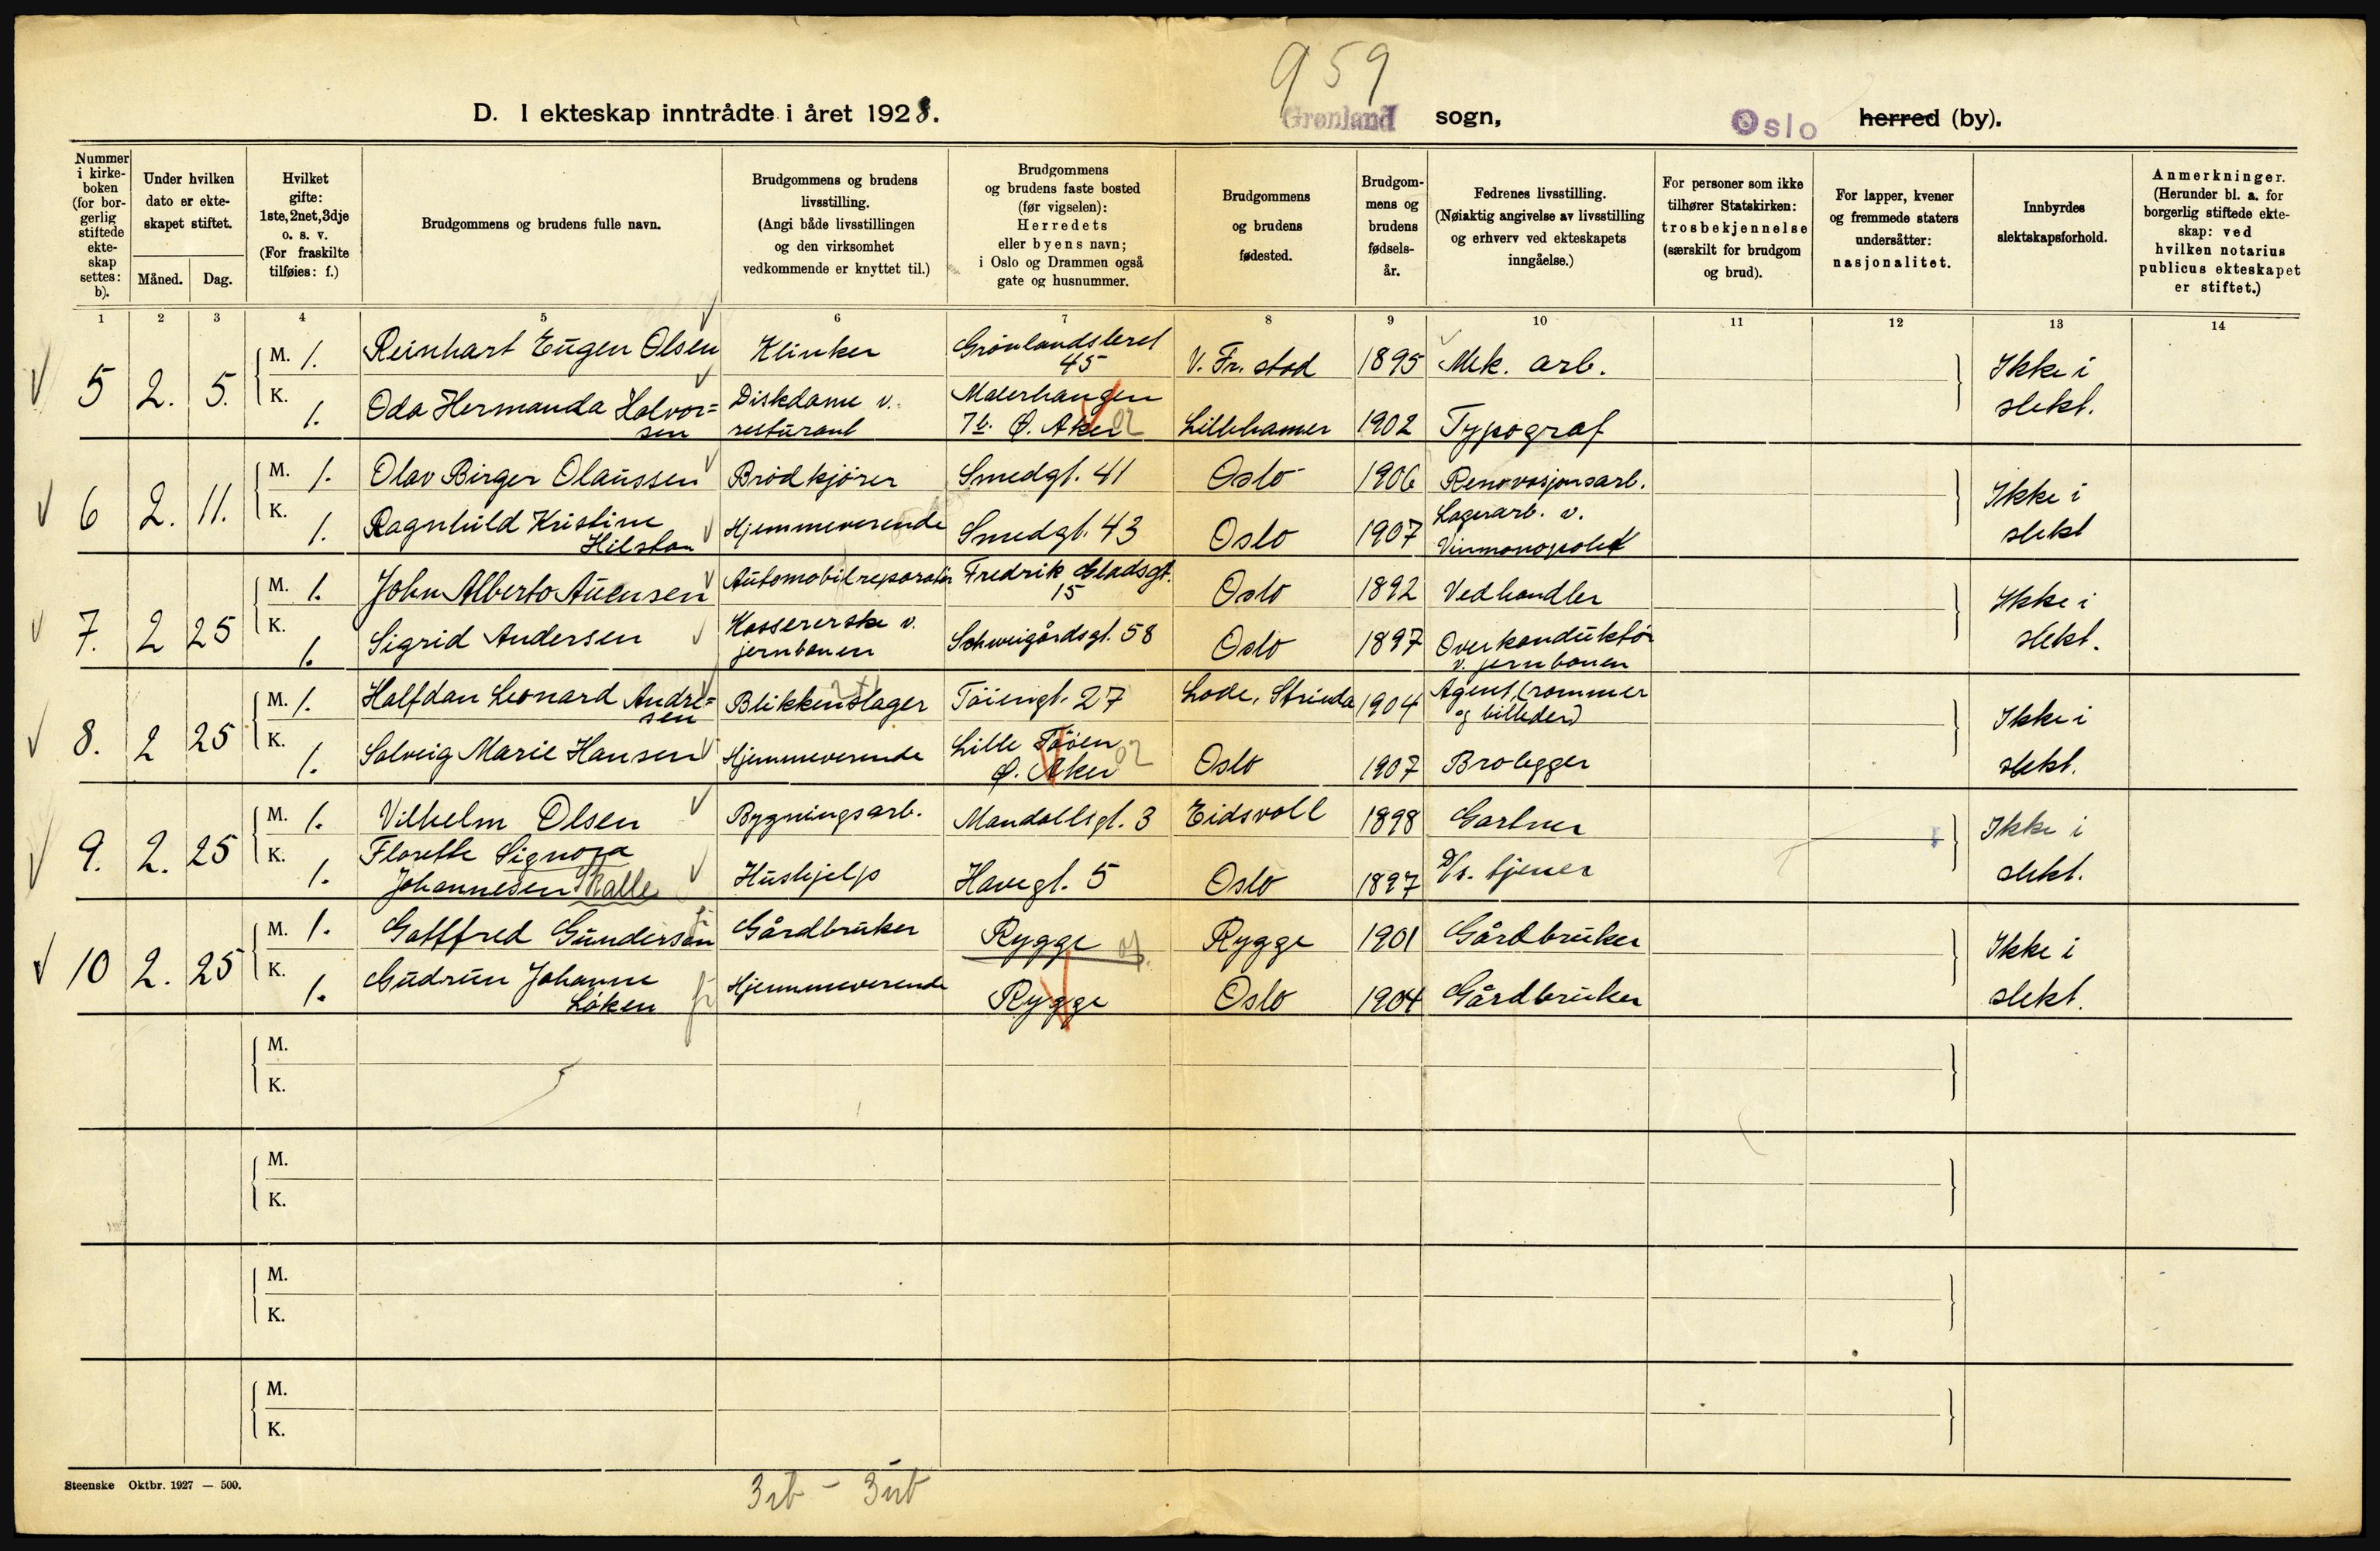 959
D. I ekteskap inntrådte i året 1928. Grønland sogn, Oslo herred (by).
Nummer i kirke- boken (for bor- gerlig stiftede ekte- skap settes: b).
Under hvilken dato er ekte- skapet stiftet.
Måned. Dag.
Hvilket gifte: 1ste, 2net, 3dje o. s. v. (For fraskilte tilføies: f.)
Brudgommens og brudens fulle navn.
Brudgommens og brudens livsstilling. (Angi både livsstillingen og den virksomhet vedkommende er knyttet til.)
Brudgommens og brudens faste bosted (før vigselen): Herredets eller byens navn; i Oslo og Drammen også gate og husnummer.
Brudgommens og brudens fødested.
Brudgom- mens og brudens fødsels- år.
Fedrenes livsstilling. (Nøiaktig angivelse av livsstilling og erhverv ved ekteskapets inngåelse.)
For personer som ikke tilhører Statskirken: trosbekjennelse (særskilt for brudgom og brud).
For lapper, kvener og fremmede staters undersåtter: nasjonalitet.
Innbyrdes slektskapsforhold.
Anmerkninger. (Herunder bl. a. for borgerlig stiftede ekte- skap: ved hvilken notarius publicus ekteskapet er stiftet.)
1 2 3 4 5 6 7 8 9 10 11 12 13 14
5 2. 5. M. 1. Reinhart Eugen Olsen Klinker Grönlandsleret 45 V. Fr. stad 1895 Mek. arb. Ikke i slekt.
K. 1. Oda Hermanda Halvor= sen Diskdame v. resturant Malerhaugen 7b. Ø. Aker 02 Lillehamer 1902 Typograf
6 2. 11. M. 1. Olav Birger Olaussen Brödkjörer Smedgt. 41 Oslo 1906 Renovasjonsarb. Ikke i slekt
K. 1. Ragnhild Kristine Hilstan Hjemmeverende Smedgt. 43 Oslo 1907 Lagerarb. v. Vinmonopolet
7. 2 25 M. 1. John Alberto Auensen Automobilreparatör Fredrik Gladsgt. 15 Oslo 1892 Vedhandler Ikke i slekt.
K. 1. Sigrid Andersen Kassererske v. jernbanen Schweigårdsgt. 58 Oslo 1897 Overkonduktör v. jernbanen
8. 2 25 M. 1. Halfdan Leonard Andre= sen Blikkenslager Töiengt. 27 Lade, Strinda 1904 Agent (rammer og billeder) Ikke i slekt.
K. 1. Solveig Marie Hansen Hjemmeverende Lille Töien Ø. Aker 02 Oslo 1907 Brolegger
9. 2. 25 M. 1. Vilhelm Olsen Bygningsarb. Mandallsgt. 3 Eidsvoll 1898 Gartner Ikke i slekt.
K. 1. Florette Signora Johannesen Skalle Hushjelp Havegt. 5 Oslo 1897 tjener
10 2. 25 M. 1. Gottfred Gundersen Gårdbruker Rygge 01. Rygge 1901 Gårdbruker Ikke i slekt.
K. 1. Gudrun Johanne Löken Hjemmeverende Rygge Oslo 1904 Gårdbruker
M.
K.
M.
K.
M.
K.
M.
K.
Steenske Oktbr. 1927 — 500.